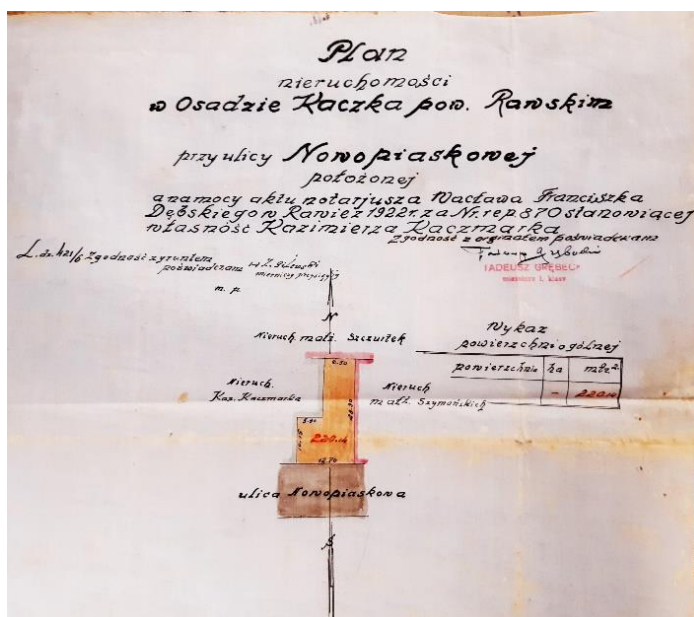 Plan
nieruchomości
w Osadzie Kaczka pow. Rawskim
przy ulicy Nowopiaskowej
położonej
a na mocy aktu notarjusza Wacława Franciszka
Dębskiego w Rawie z 1922 r. za Nr. rep 870 stanowiącej
własność Kazimierza Kaczmarka
Zgodność z orginałem poświadczam
Zgodność z gruntem
poświadczam
mierniczy przysięgły
m. p.
TADEUSZ GRĘBECKI
N
Nieruch. małż. Szczurek
Wykaz
powierzchni ogólnej
powierzchnia ha mtr.²
- 220.10
Nieruch.
Kaz. Kaczmarka
Nieruch
małż. Szymońskich
6.50
5.40
12.70
ulica Nowopiaskowa
S